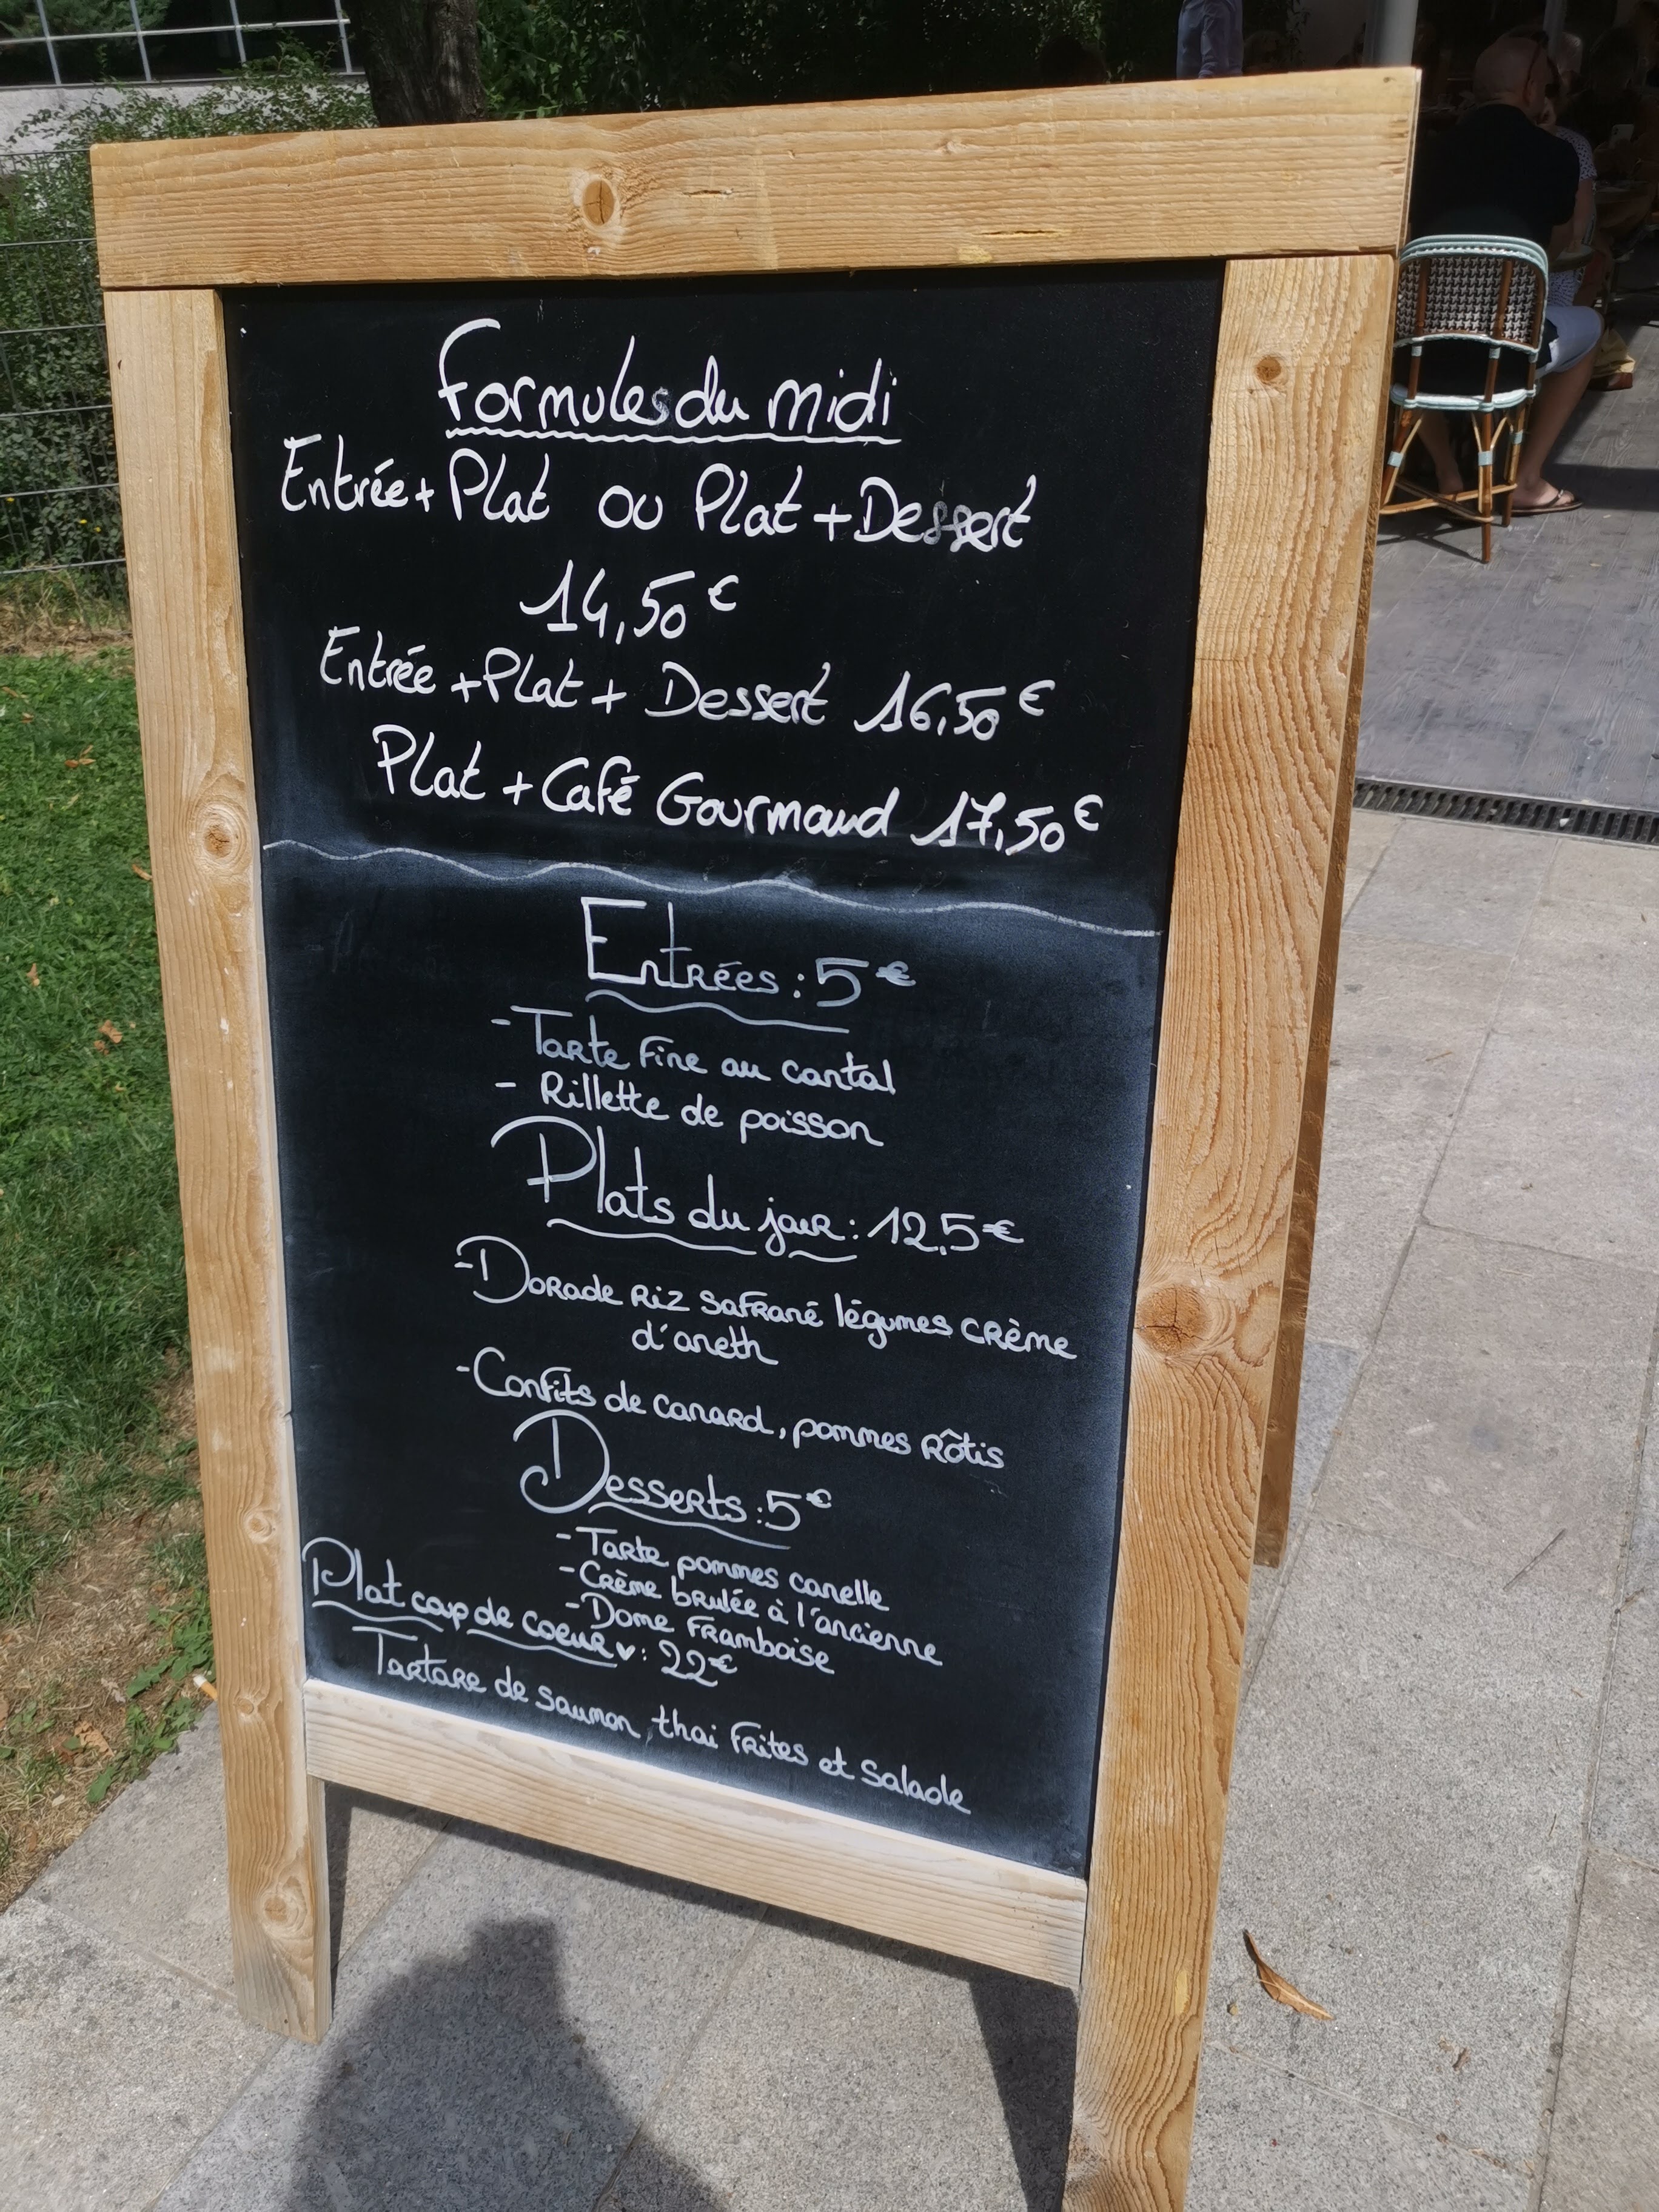 Formules du midi
Entrée + Plat ou Plat + Dessert
14,50€
Entrée + Plat + Dessert 16,50€
Plat + Café Gourmand 17,50€
Entrées : 5€
- Tarte fine au cantal
- Rillette de poisson
Plats du jour : 12,5€
- Dorade riz safrané légumes crème
d'aneth
- Confits de canard, pommes rôtis
Desserts : 5€
- Tarte pommes canelle
- Crème brulée à l'ancienne
- Dome Framboise
Plat coup de coeur ♥ : 22€
Tartare de saumon thai frites et salade